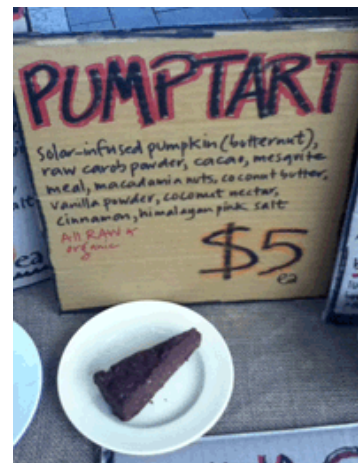 PUMPTART
Solar-infused pumpkin (butternut),
raw carob powder, cacao, mesquite
meal, macadamia nuts, coconut butter,
vanilla powder, coconut nectar,
cinnamon, himalayan pink salt
All RAW &
organic
$5
ea
ea